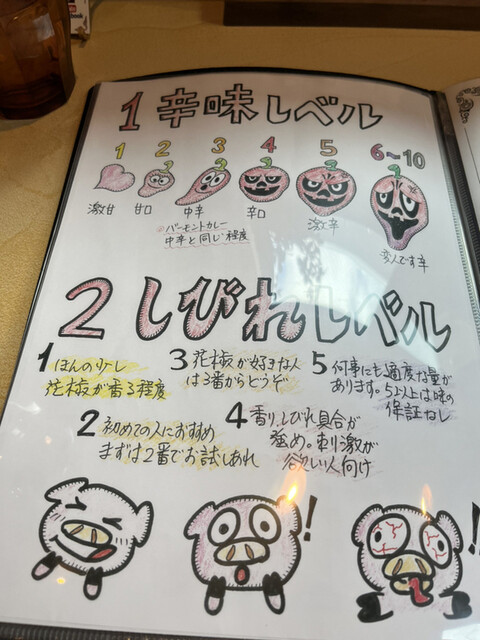 1 辛味レベル
1 2 3 4 5 6~10
激甘 甘口 中辛 辛口 激辛 変人です辛
※バーモントカレー
中辛と同じ程度
2 しびれレベル
1 ほんの少し
花椒が香る程度
2 初めての人におすすめ
まずは2番でお試しあれ
3 花椒が好きな人
は3番からどうぞ
4 香り、しびれ具合が
強め。刺激が
欲しい人向け
5 何事にも適度な量が
あります。5以上は味の
保証なし
!
!